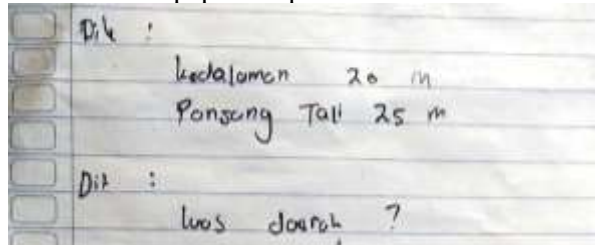 Dik :
kedalaman 20 m
Panjang Tali 25 m
Dit :
luas daerah ?